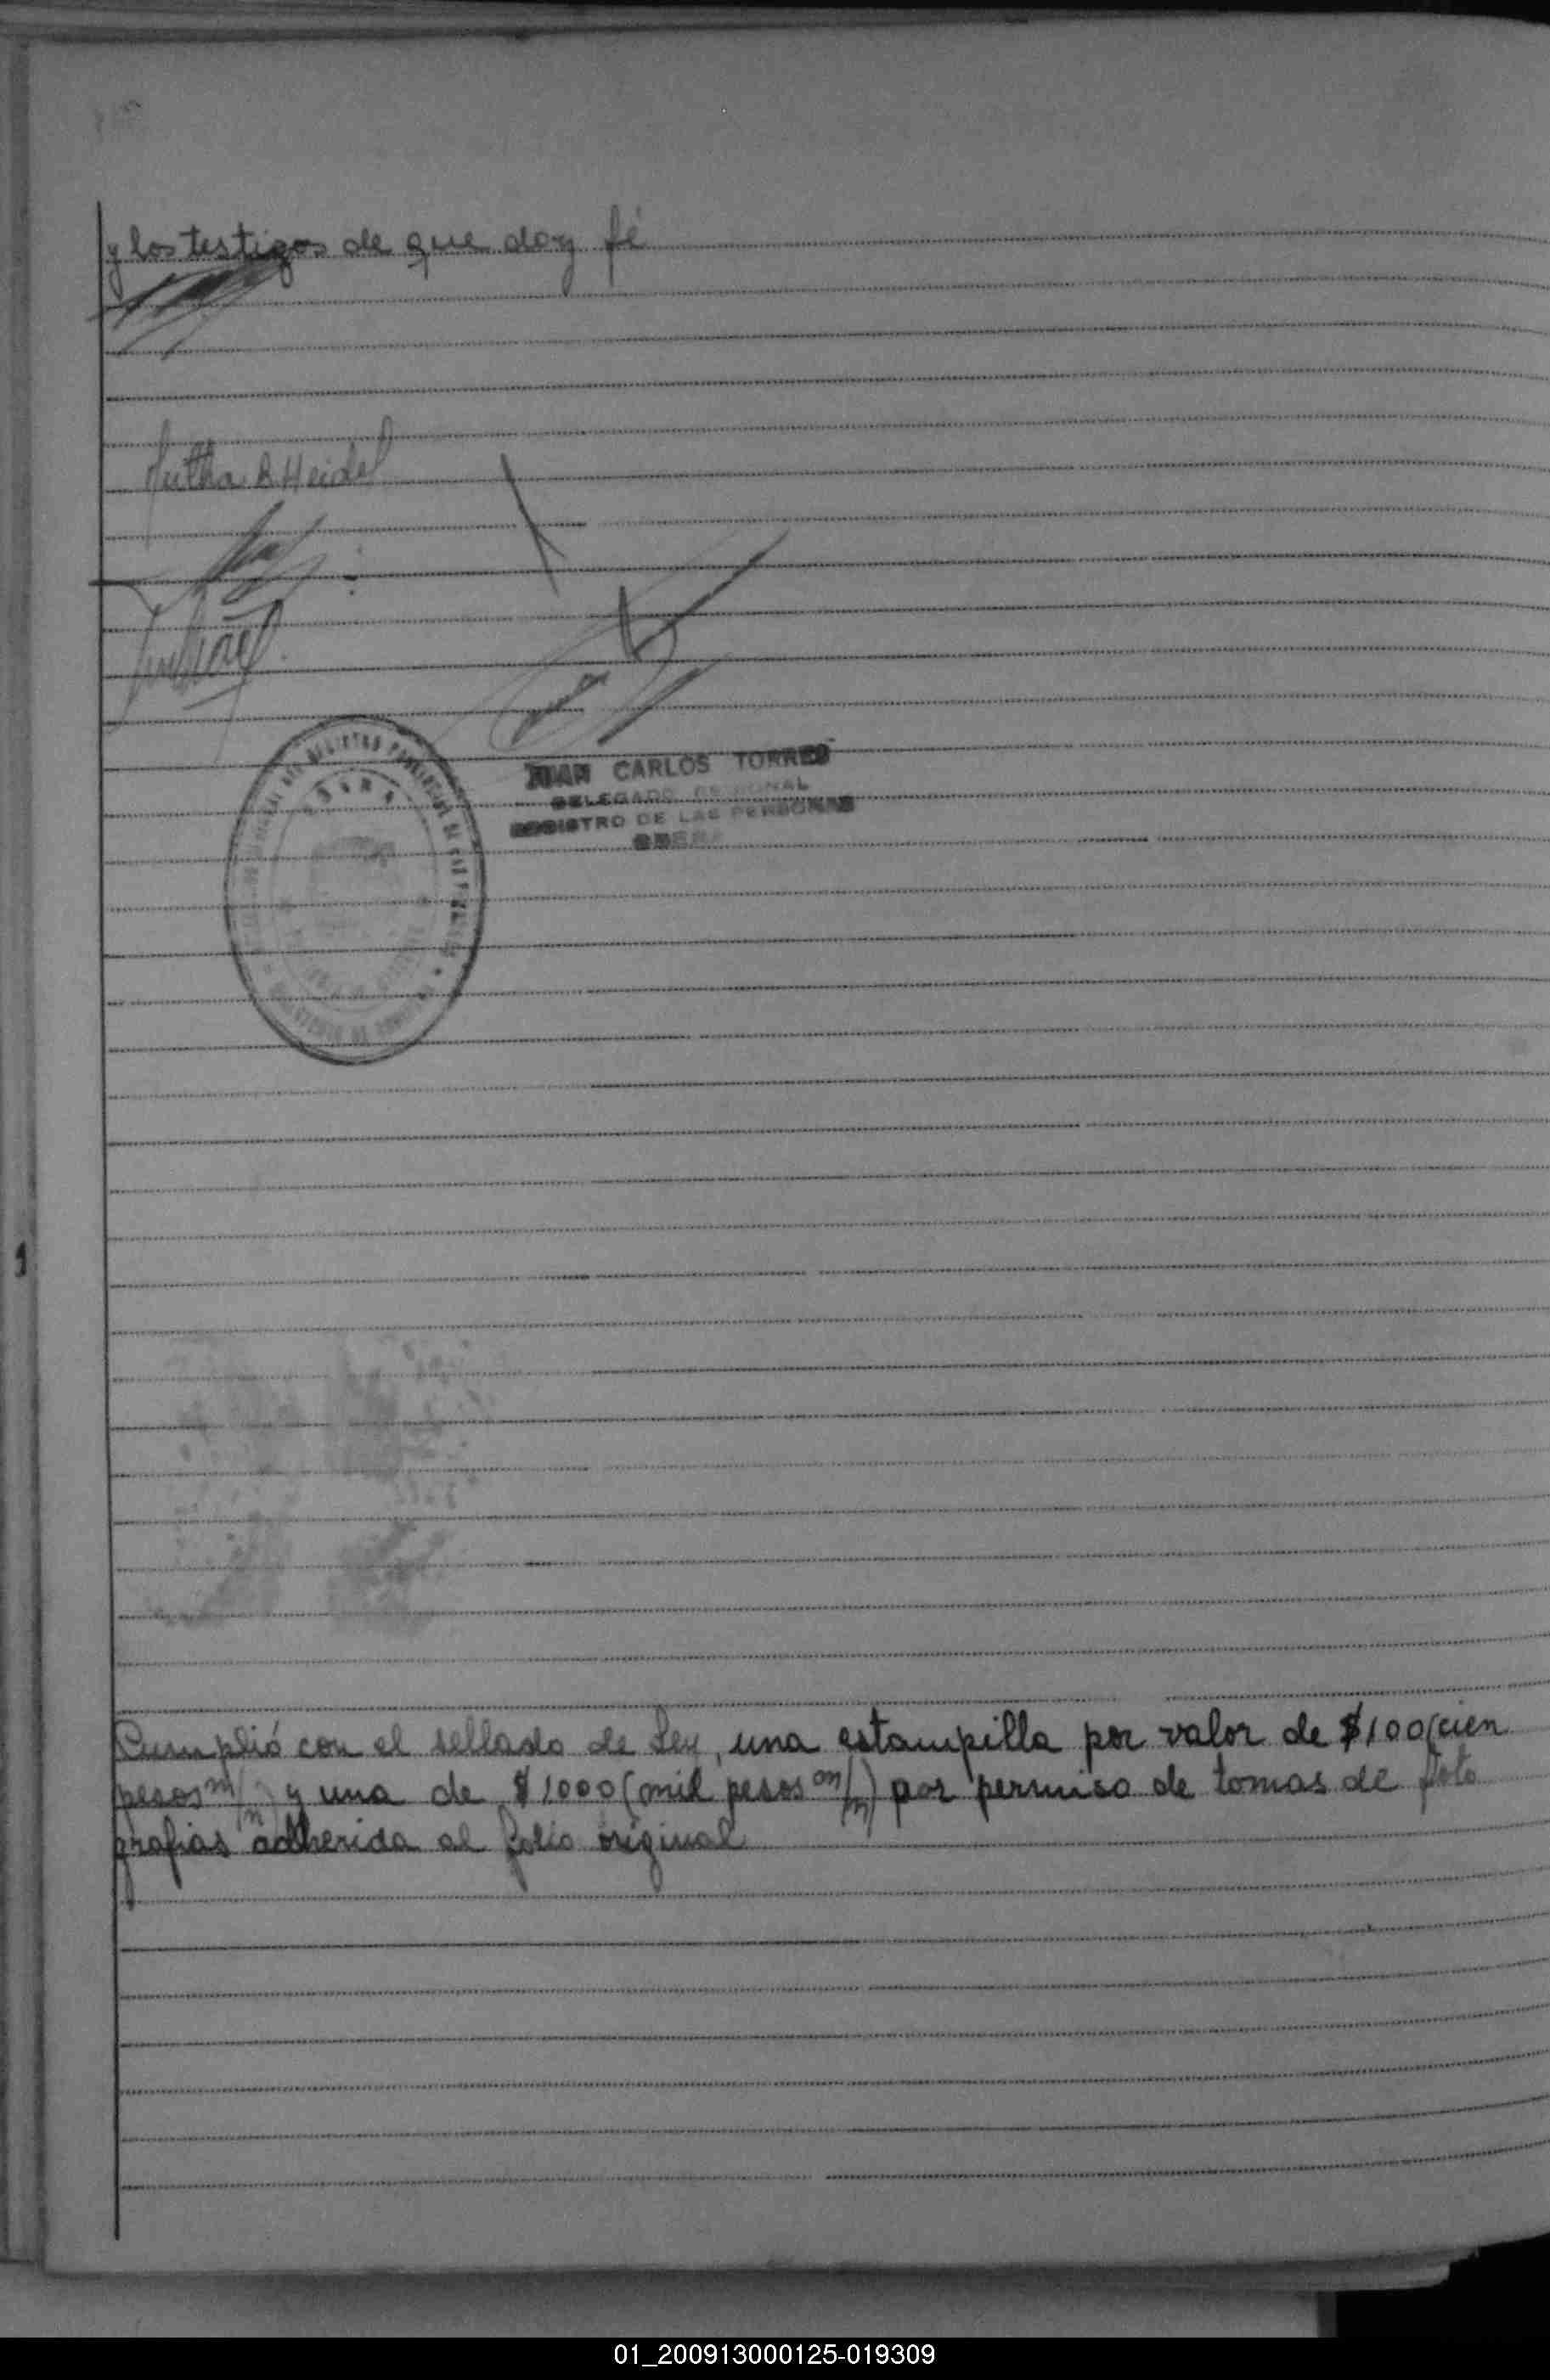 y los testigos de que doy fé
B Heidel
JUAN CARLOS TORRES
DELEGADO
REGISTRO DE LAS PERSONAS
OBERA
Cumplió con el sellado de Ley, una estampilla por valor de $100 (cien
pesos m/n) y una de $1000 (mil pesos m/n) por permiso de tomas de foto
grafias adherida al folio original
01_200913000125-019309